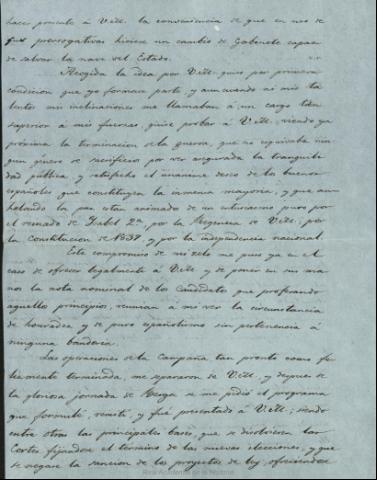 hacer presente á V.M. la conveniencia de que en uso de
sus prerrogativas hiciese un cambio de Gabinete capaz
de salvar la nave del Estado.
Acogida la idea por V.M. puso por primera
condicion que yo formara parte, y aun cuando ni mis ta-
lentos ni mis inclinaciones me llamaban á un cargo tan
superior á mis fuerzas, quise probar á V.M., viendo ya
próxima la terminacion de la guerra, que no esquivaba nin-
gun género de sacrificio por ver asegurada la tranquili-
dad pública, y satisfecho el unánime deseo de los buenos
españoles que constituyen la inmensa mayoría, y que an-
helando la paz estan animados de un entusiasmo puro por
el reinado de Isabel 2ª, por la Regencia de V.M., por
la Constitucion de 1837, y por la independencia nacional.
Este compromiso de mi zelo me puso ya en el
caso de ofrecer lealmente á V.M. y de poner en sus ma-
nos la nota nominal de los Candidatos que profesando
aquellos principios, reunian á mi ver la circunstancia
de honradez y de puro españolismo sin pertenencia á
ninguna bandería.
Las operaciones de la Campaña tan pronto como fe-
lizmente terminada, me separaron de V.M. y despues de
la gloriosa jornada de Vergara se me pidió el programa
que formulé, remití, y fué presentado á V.M.; siendo
entre otras las principales bases, que se disolviesen las
Cortes fijándose el término de las nuevas elecciones, y que
se negase la sancion de los proyectos de ley, ofreciéndose
Real Academia de la Historia